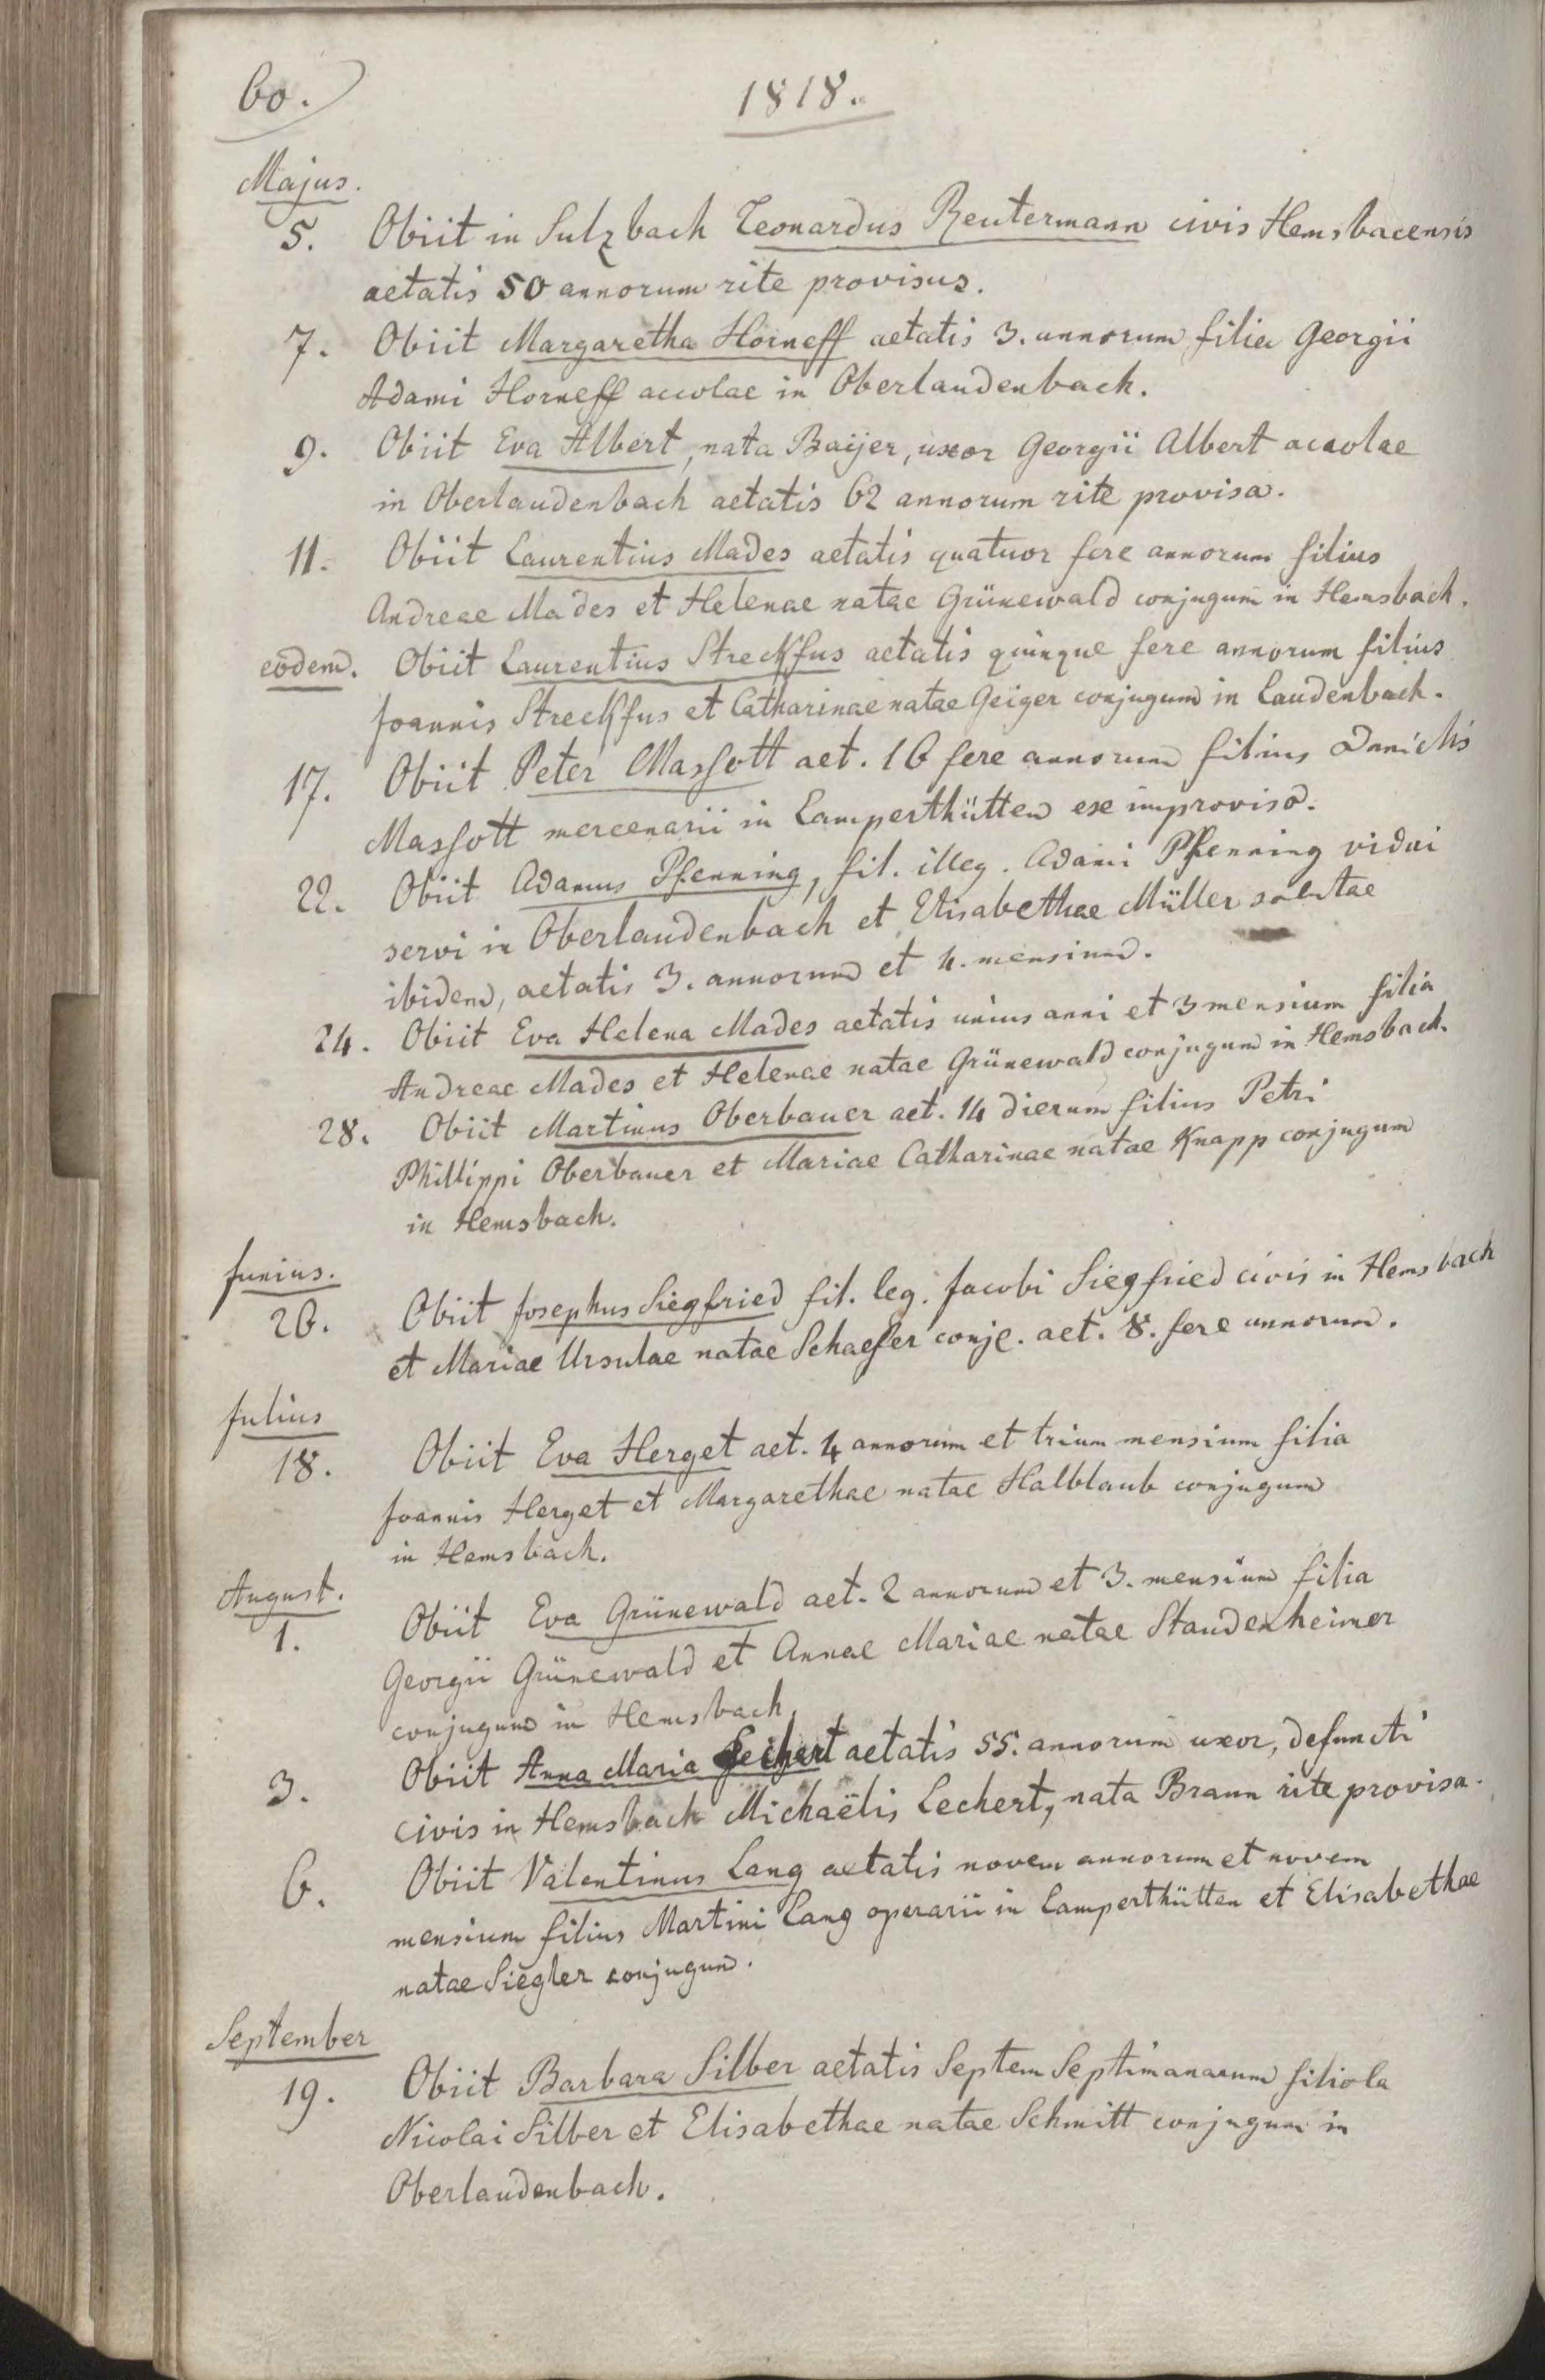 60.
1818.
Majus.
5. Obiit in Sulzbach Leonardus Reutermann civis Hemsbacensis
aetatis 50 annorum rite provisus.
7. Obiit Margaretha Horneff aetatis 3. annorum filia Georgii
Adami Horneff accolae in Oberlaudenbach.
9. Obiit Eva Albert, nata Baijer, uxor Georgii Albert accolae
in Oberlaudenbach aetatis 62 annorum rite provisa.
11. Obiit Laurentius Mades aetatis quatuor fere annorum filius
Andreae Mades et Helenae natae Grünewald conjugum in Hemsbach.
eodem. Obiit Laurentius Streckfus aetatis quinque fere annorum filius
Joannis Streckfus et Catharinae natae Geiger conjugum in Laudenbach.
17. Obiit Peter Massott aet. 16 fere annorum filius Danielis
Massott mercenarii in Lamperthütten ex improviso.
22. Obiit Adamus Pfenning, fil. illeg. Adami Pfenning vidui
servi in Oberlaudenbach et Elisabethae Müller solutae
ibidem, aetatis 3. annorum et 4. mensium.
24. Obiit Eva Helena Mades aetatis unius anni et 3 mensium filia
Andreae Mades et Helenae natae Grünewald conjugum in Hemsbach.
28. Obiit Martinus Oberbauer aet. 14 dierum filius Petri
Phillippi Oberbauer et Mariae Catharinae natae Knapp conjugum
in Hemsbach.
Junius.
26. Obiit Josephus Siegfried fil. leg. Jacobi Siegfried civis in Hemsbach
et Mariae Ursulae natae Schaefer conje. aet. 8. fere annorum.
Julius
18. Obiit Eva Herget aet. 4 annorum et trium mensium filia
Joannis Herget et Margarethae natae Halblaub conjugum
in Hemsbach.
August.
1. Obiit Eva Grünewald aet. 2 annorum et 3. mensium filia
Georgii Grünewald et Annae Mariae natae Staudenheimer
conjugum in Hemsbach.
3. Obiit Anna Maria Lechert aetatis 55. annorum uxor, defuncti
civis in Hemsbach Michaëlis Lechert, nata Braun rite provisa.
6. Obiit Valentinus Lang aetatis novem annorum et novem
mensium filius Martini Lang operarii in Lamperthütten et Elisabethae
natae Siegler conjugum.
September
19. Obiit Barbara Silber aetatis Septem Septimanarum filiola
Nicolai Silber et Elisabethae natae Schmitt conjugum in
Oberlaudenbach.